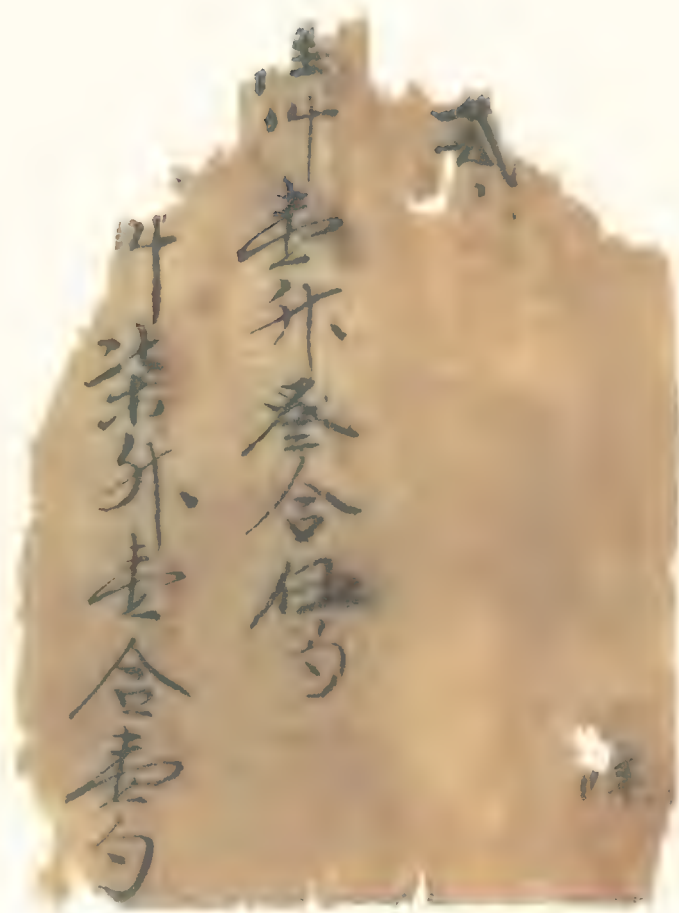 貳
陸㪷壹升叁合伍勺
㪷柒升壹合壹勺